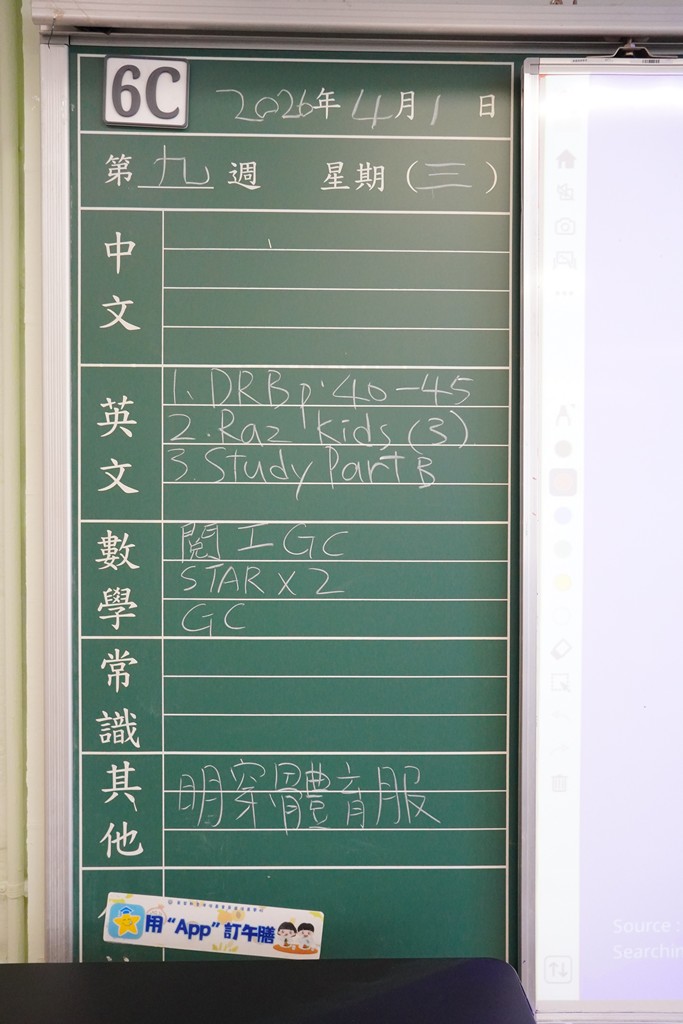 6C
2026年4月1日
第九週 星期（三）
中文
英文
1. DRB p.40-45
2. Raz Kids (3)
3. Study Part B
數學
閱工GC
STAR x 2
GC
常識
其他
明穿體育服
用“App”訂午膳
Source :
Searchin